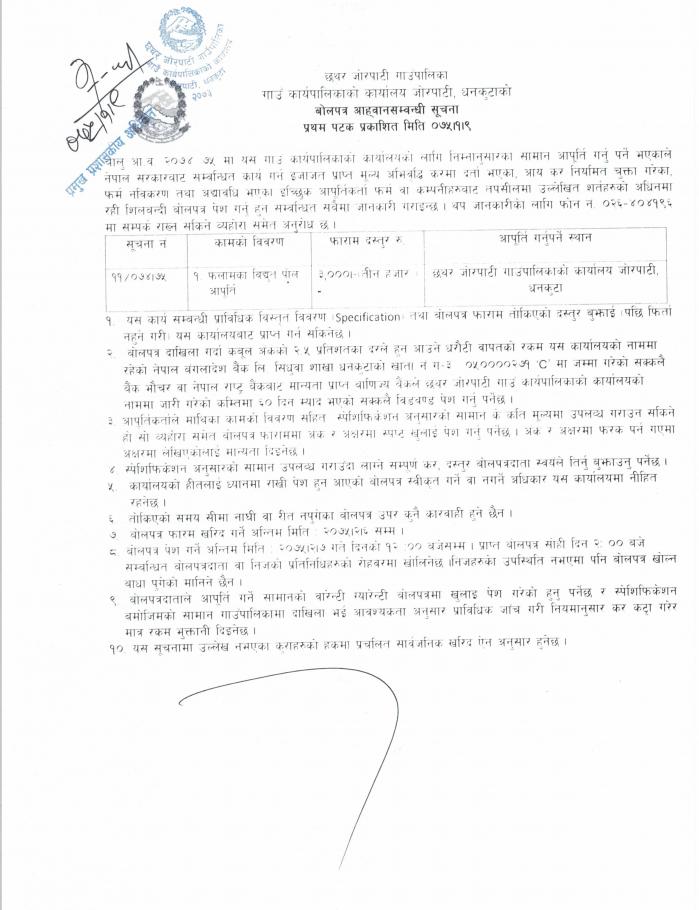 छथर जोरपाटी गाउँपालिका
गाउँ कार्यपालिकाको कार्यालय
जोरपाटी, धनकुटा
२०७३
प्रमुख प्रशासकीय अधिकृत
छथर जोरपाटी गाउँपालिका
गाउँ कार्यपालिकाको कार्यालय जोरपाटी, धनकुटाको
बोलपत्र आह्वानसम्बन्धी सूचना
प्रथम पटक प्रकाशित मिति ०७५।१।९
चालु आ.व २०७४।७५ मा यस गाउँ कार्यपालिकाको कार्यालयको लागि निम्नानुसारका सामान आपूर्ति गर्नु पर्ने भएकाले
नेपाल सरकारबाट सम्बन्धित कार्य गर्न इजाजत प्राप्त मूल्य अभिवृद्धि करमा दर्ता भएका, आय कर नियमित चुक्ता गरेका,
फर्म नविकरण तथा अद्यावधि भएका इच्छिक आपूर्तिकर्ता फर्म वा कम्पनीहरुबाट तपसीलमा उल्लेखित शर्तहरुको अधिनमा
रही शिलवन्दी बोलपत्र पेश गर्नु हुन सम्बन्धित सबैमा जानकारी गराइन्छ । थप जानकारीको लागि फोन नं. ०२६-४०४१९६
मा सम्पर्क राख्न सकिने व्यहोरा समेत अनुरोध छ ।
सूचना नं कामको विवरण फाराम दस्तुर रु आपूर्ति गर्नुपर्ने स्थान
११/०७४।७५ १. फलामका विद्युत पोल ३,०००।-(तीन हजार ) छथर जोरपाटी गाउँपालिकाको कार्यालय जोरपाटी,
आपूर्ति - धनकुटा
१. यस कार्य सम्बन्धी प्राविधिक विस्तृत विवरण (Specification) तथा बोलपत्र फाराम तोकिएको दस्तुर बुझाई (पछि फिर्ता
नहुने गरी) यस कार्यालयबाट प्राप्त गर्न सकिनेछ ।
२. बोलपत्र दाखिला गर्दा कबुल अंकको २.५ प्रतिशतका दरले हुन आउने धरौटी वापतको रकम यस कार्यालयको नाममा
रहेको नेपाल बंगलादेश बैंक लि. सिधुवा शाखा धनकुटाको खाता नं ग-३ ०५००००२७१ 'C' मा जम्मा गरेको सक्कलै
बैंक भौचर वा नेपाल राष्ट्र बैंकबाट मान्यता प्राप्त वाणिज्य बैंकले छथर जोरपाटी गाउँ कार्यपालिकाको कार्यालयको
नाममा जारी गरेको कम्तिमा ६० दिन म्याद भएको सक्कलै विडवण्ड पेश गर्नु पर्नेछ ।
३. आपूर्तिकर्ताले माथिका कामको विवरण सहित स्पेशिफिकेशन अनुसारको सामान के कति मूल्यमा उपलब्ध गराउन सकिने
हो सो व्यहोरा समेत बोलपत्र फाराममा अंक र अक्षरमा स्पष्ट खुलाइ पेश गर्नु पर्नेछ । अंक र अक्षरमा फरक पर्न गएमा
अक्षरमा लेखिएकोलाई मान्यता दिइनेछ ।
४. स्पेशिफिकेशन अनुसारको सामान उपलब्ध गराउँदा लाग्ने सम्पूर्ण कर, दस्तुर बोलपत्रदाता स्वयंले तिर्नु बुझाउनु पर्नेछ ।
५. कार्यालयको हीतलाई ध्यानमा राखी पेश हुन आएको बोलपत्र स्वीकृत गर्ने वा नगर्ने अधिकार यस कार्यालयमा नीहित
रहनेछ ।
६. तोकिएको समय सीमा नाघी वा रीत नपुगेका बोलपत्र उपर कुनै कारवाही हुने छैन ।
७. बोलपत्र फारम खरिद गर्ने अन्तिम मिति : २०७५।२।६ सम्म ।
८. बोलपत्र पेश गर्ने अन्तिम मिति : २०७५।२।७ गते दिनको १२ :०० बजेसम्म । प्राप्त बोलपत्र सोही दिन २: ०० बजे
सम्बन्धित बोलपत्रदाता वा निजको प्रतिनिधिहरुको रोहवरमा खोलिनेछ ।निजहरुको उपस्थिति नभएमा पनि बोलपत्र खोल्न
बाधा पुगेको मानिने छैन ।
९. बोलपत्रदाताले आपूर्ति गर्ने सामानको वारेन्टी ग्यारेन्टी बोलपत्रमा खुलाइ पेश गरेको हुनु पर्नेछ र स्पेशिफिकेशन
बमोजिमको सामान गाउँपालिकामा दाखिला भई आवश्यकता अनुसार प्राविधिक जाँच गरी नियमानुसार कर कट्टा गरेर
मात्र रकम भुक्तानी दिइनेछ ।
१०. यस सूचनामा उल्लेख नभएका कुराहरुको हकमा प्रचलित सार्वजनिक खरिद ऐन अनुसार हुनेछ ।